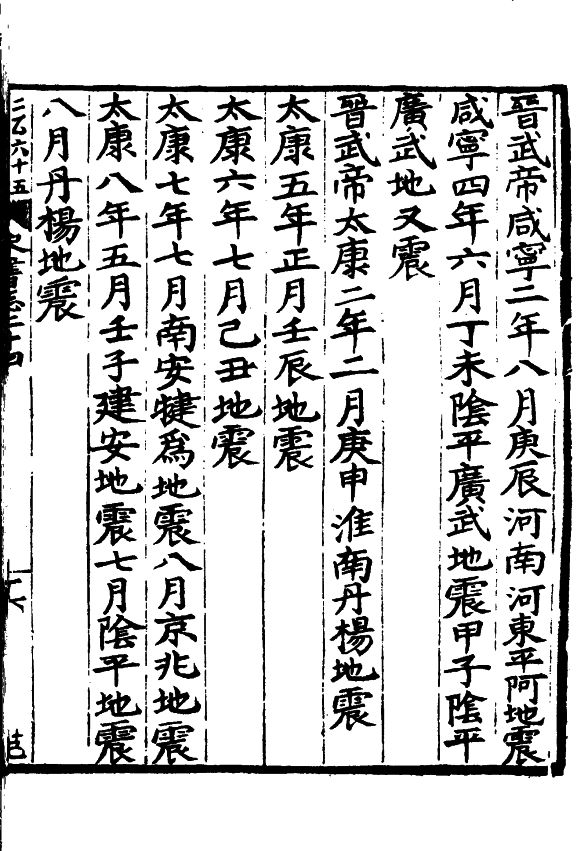 晉武帝咸寧二年八月庚辰河南河東平阿地震
咸寧四年六月丁未陰平廣武地震甲子陰平
廣武地又震
晉武帝太康二年二月庚申淮南丹楊地震
太康五年正月壬辰地震
太康六年七月己丑地震
太康七年七月南安犍爲地震八月京兆地震
太康八年五月壬子建安地震七月陰平地震
八月丹楊地震
二乙六十五